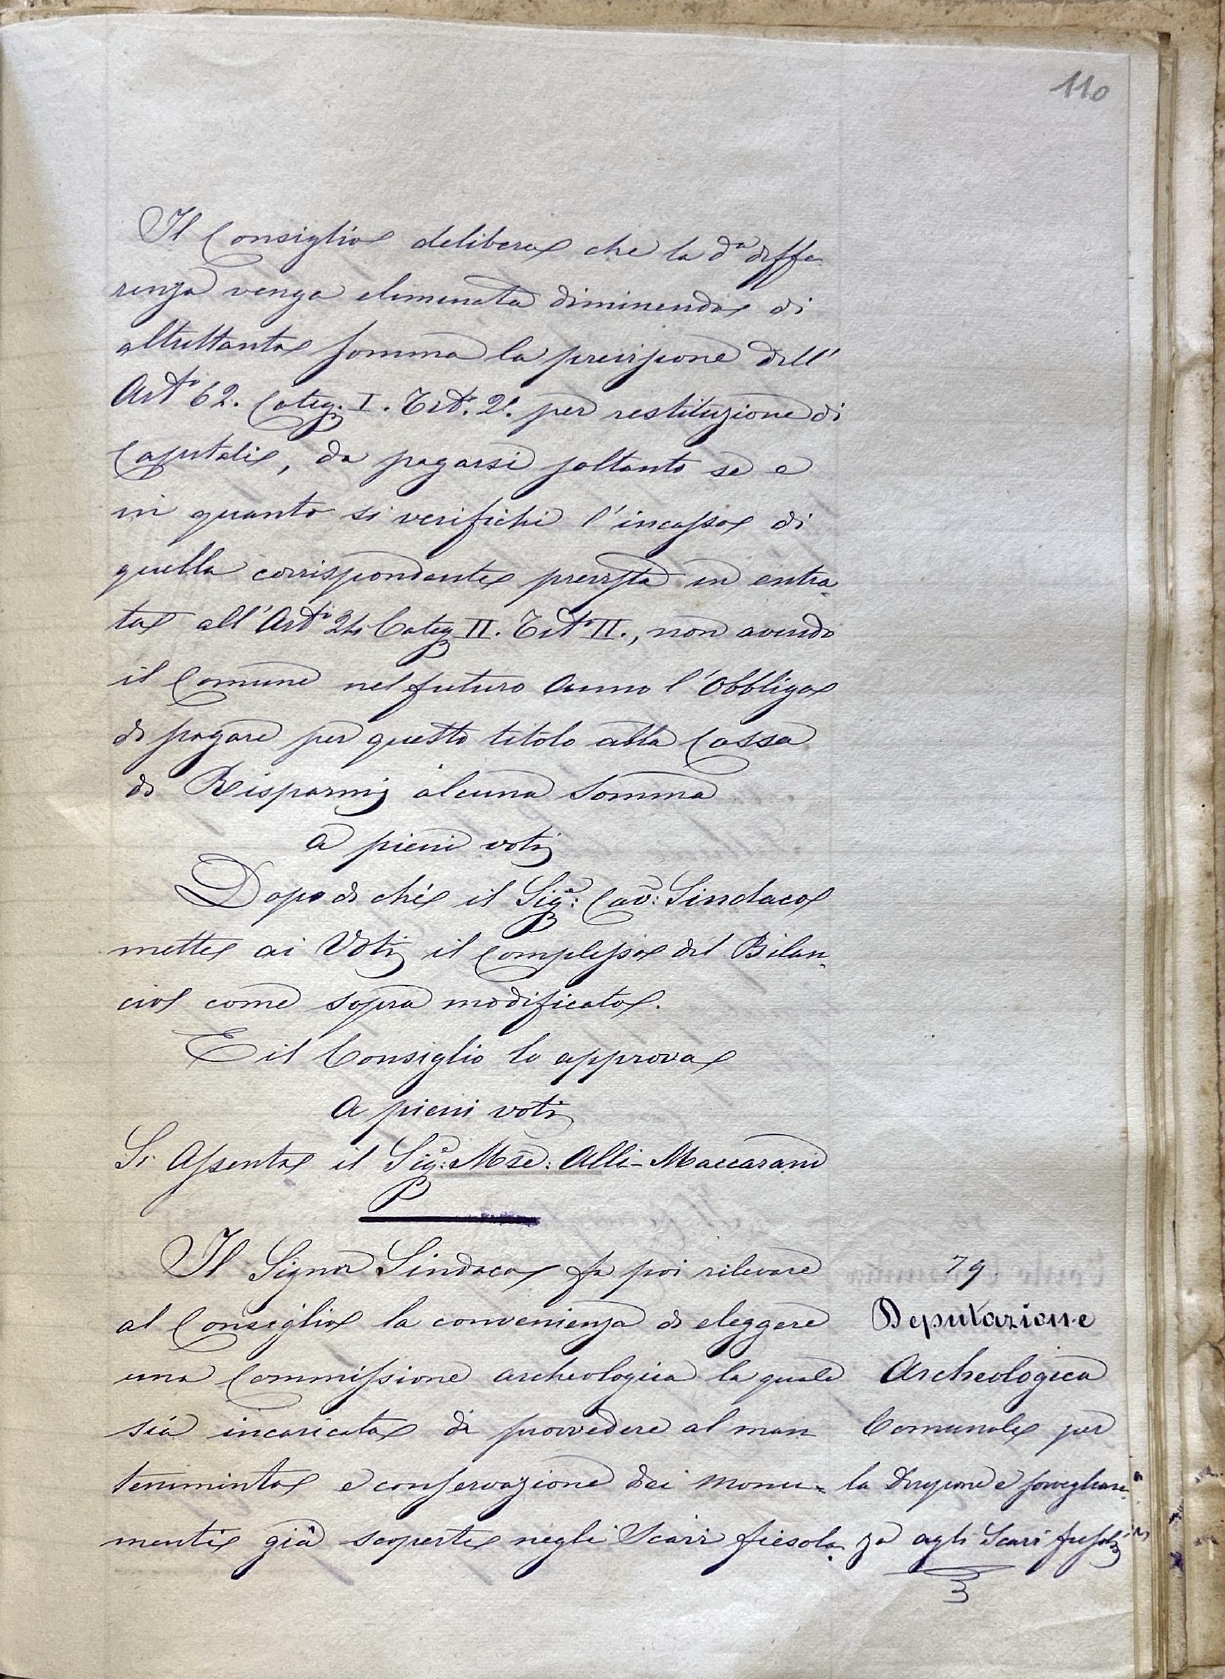 110
Il Consiglio delibera che la dª diffe-
renza venga eliminata diminendo di
altrettanta somma la previsione dell'
Artº 62. Categ. I. Titº. 2º. per restituzione di
Capitali, da pagarsi soltanto se e
in quanto si verifichi l'incasso di
quella corrispondente prevista in entra-
ta all'Artº 24 Categ II. Titº II., non avendo
il Comune nel futuro Anno l'Obbligo
di pagare per questo titolo alla Cassa
di Risparmj alcuna Somma
a pieni voti
Dopo di chè il Sigr: Cav: Sindaco
mette ai Voti il Complesso del Bilan-
cio come sopra modificato.
E il Consiglio lo approva
a pieni voti
Si Assenta il Sigr: Mse: Alli-Maccarani
Il Signor Sindaco fa poi rilevare
al Consiglio la convenienza di eleggere
una Commissione archeologica la quale
sia incaricata di provvedere al man
tenimento e conservazione dei monu-
menti già scoperti negli Scavi fiesola-
79
Deputazione
Archeologica
Comunale per
la Direzione e sorveglian-
za agli Scavi fiesolni